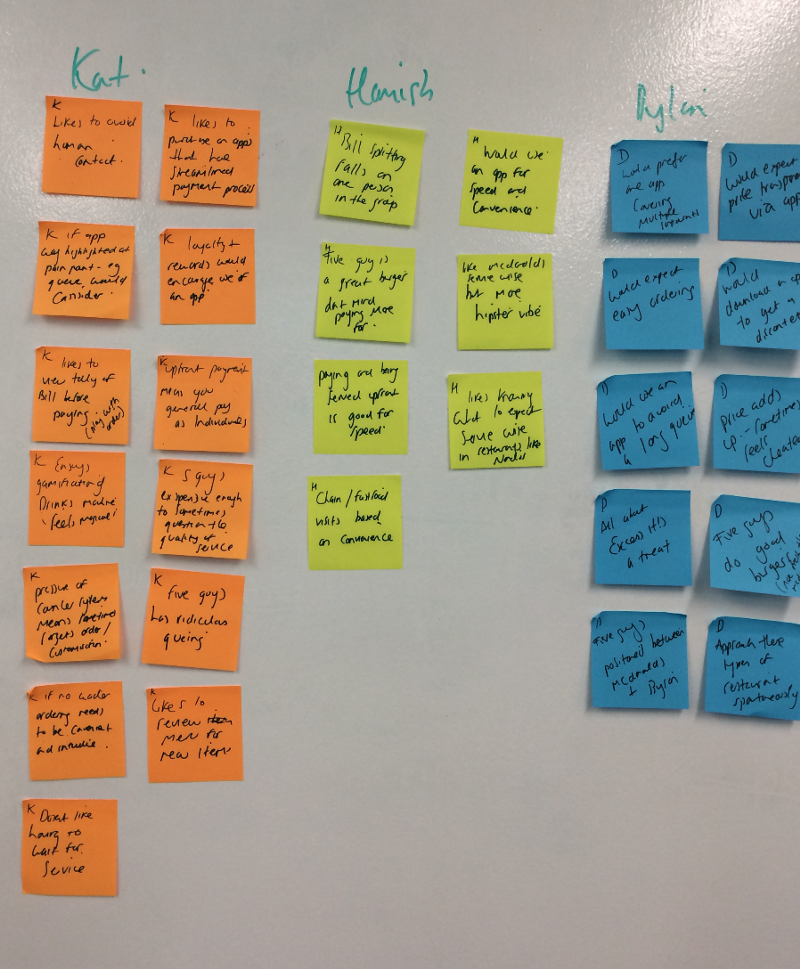 Kat.
K
Likes to avoid
human
contact.
K likes to
purchase on apps
that have
streamlined
payment process
K if app
was highlighted at
pain point - eg
queue, would
consider.
K loyalty +
rewards would
encourage use of
an app.
K likes to
view tally of
Bill before
paying.
order)
K upfront payment
mean you
general pay
as Individuals
K Enjoys
gamification of
Drinks machine
'feels magical'
K 5 guys
expensive enough
to sometimes
question the
quality of
service
K
pressure of
means sometimes
forgets order/
customisation.
K five guys
has ridiculous
queing
K if no waiter
ordering needs
to be convenient
and intuitive.
K
likes to
review
menu for
new items
K Doesnt like
having to
wait for
service
Hamish
H
Bill splitting
falls on
one person
in the group
H
Would use
an app for
speed and
convenience.
H
Five guys is
a great burger
dont mind
paying more
for.
like mcdonalds
sense wise
but more
hipster vibe
paying and being
served upfront
is good for
speed
H likes knowing
what to expect
in restaurants like
Nandos
H
Chain / fastfood
visits based
on convenience
Dylan
D
Would prefer
one app
covering
multiple
D
Would expect
price transpar
via app
D
Would expect
easy ordering
D
Would
download an ap
to get a
discount
D
Would use an
app to avoid
a long queue
D
Price adds
up - sometimes
feels
cheated
D
All about
Excess it's
a treat
D
Five guys
do good
burgers
D
Five guys
positioned between
McDonalds
+ Byron
D
Approach these
types of
restaurant
spontaneously